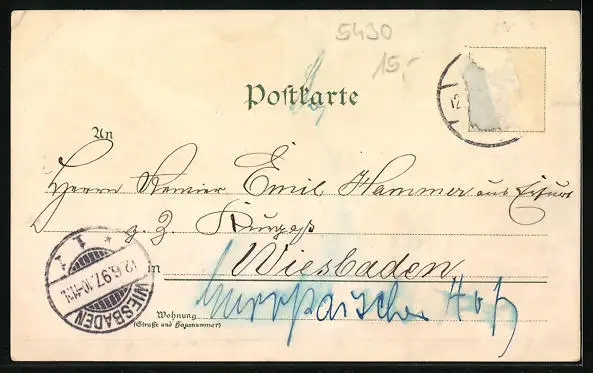 5430
15,-
Postkarte
12
An
Herrn Rentier Emil Hammer aus Erfurt
z. Z.
in Wiesbaden
WIESBADEN
12.6.97. 10-11 V.
1
Europäischer Hof
Wohnung
(Straße und Hausnummer)